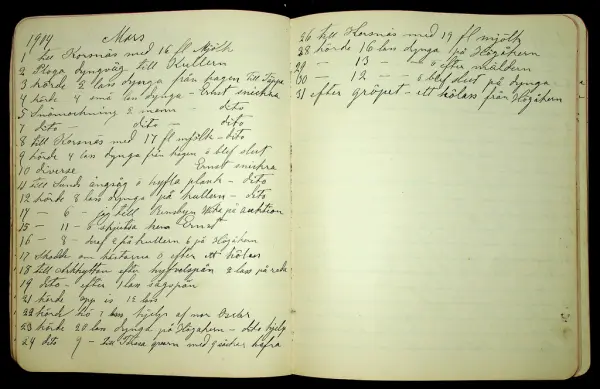 1914 Mars
1 till Korsnäs med 16 fl Mjölk
2 Ploga dyngväg till Kullern
3 körde 2 lass dynga från hagen till Täppa
4 körde 4 små lass dynga - Ernst snickra
5 Snömockning 2 mann - dito
7 dito - dito - dito
8 till Korsnäs med 17 fl mjölk - dito
9 körde 4 lass dynga från hagen å blef slut
10 diverse Ernst snickra
11 till Sunds ångsåg å hyfla plank - dito
12 körde 8 lass dynga på kullern - dito
14 - 6 - jag till på auktion
15 - 11 - å skjutsa hem Ernst
16 - 8 - deraf 2 på kullern 6 på Högåkern
17 Skodde om hästarna å efter ett hölass
18 till Arkhyttan efter hyfvelspån 2 lass på
19 dito - efter 1 lass sågspån
21 körde upp is 12 lass
22 körde hö 7 lass, hjelp af mor
23 körde 20 lass dynga på Högåkern - hjelp
24 dito 9 - till qvarn med 9 säckar hafra
26 till Korsnäs med 19 fl mjölk
28 körde 16 lass dynga på Högåkern
29 - 13 - - å efter mäldern
30 - 12 - - å blef slut på dynga
31 efter gröpet - ett hölass från Högåkern